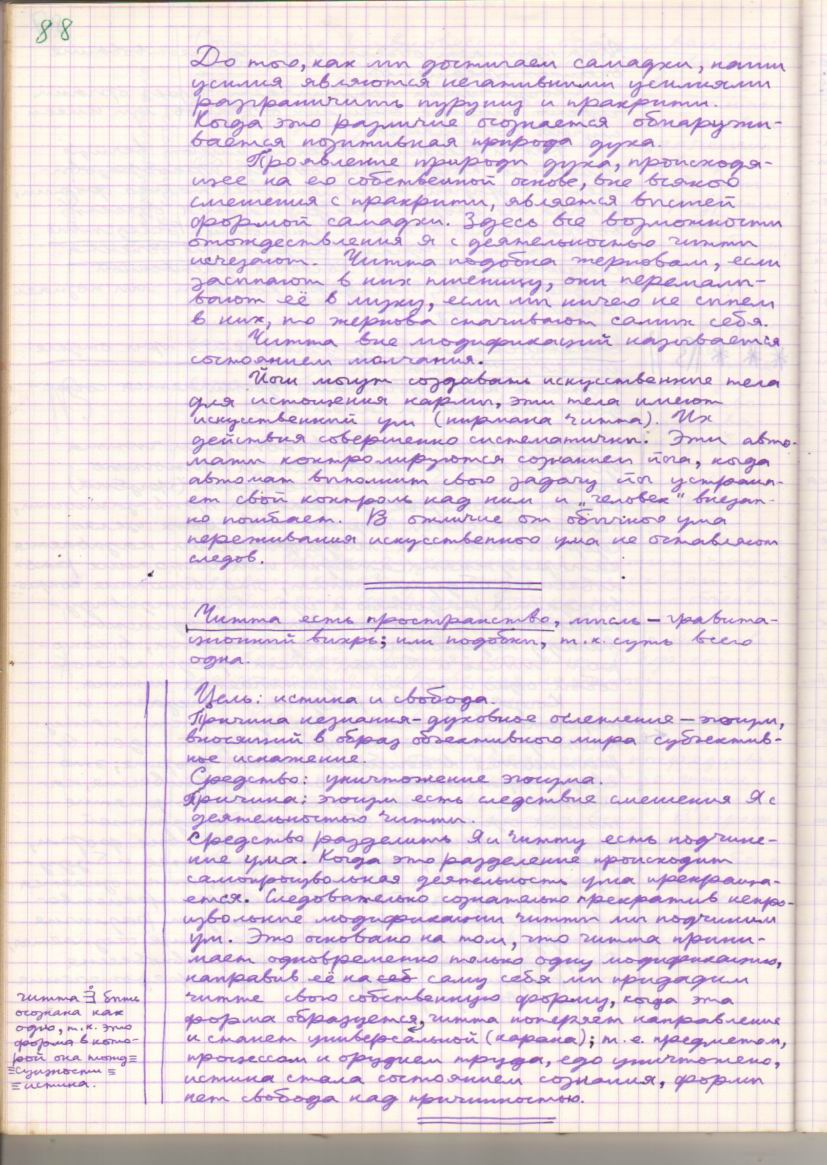 88
До того, как мы достигаем самадхи, наши
усилия являются негативными усилиями
разграничить пурушу и пракрити.
Когда это различие осознается обнаружи-
вается позитивная природа духа.
Проявление природы духа, происходя-
щее на его собственной основе, вне всякого
смешения с пракрити, является высшей
формой самадхи. Здесь все возможности
отождествления я с деятельностью читты
исчезают. Читта подобна жерновам, если
засыпают в них пшеницу, они перемалы-
вают её в муку, если мы ничего не сыпем
в них, то жернова стачивают самих себя.
Читта вне модификаций называется
состоянием молчания.
Йоги могут создавать искусственные тела
для истощения кармы, эти тела имеют
искусственный ум (нирмана читта). Их
действия совершенно систематичны. Эти авто-
маты контролируются сознанием йога, когда
автомат выполнит свою задачу йог устраня-
ет свой контроль над ним и „человек" внезап-
но погибает. В отличие от обычного ума
переживания искусственного ума не оставляют
следов.
Читта есть пространство, мысль – гравита-
ционный вихрь; или подобны, т.к. суть всего
одна.
Цель: истина и свобода.
Причина незнания – духовное ослепление – эгоизм,
вносящий в образ объективного мира субъектив-
ное искажение.
Средство: уничтожение эгоизма.
Причина: эгоизм есть следствие смешения Я с
деятельностью читты.
Средство разделить Я и читту есть подчине-
ние ума. Когда это разделение происходит
самопроизвольная деятельность ума прекраща-
ется. Следовательно сознательно прекратив непро-
извольные модификации читты мы подчиним
ум. Это основано на том, что читта прини-
мает одновременно только одну модификацию,
направив её на саму себя мы придадим
читте свою собственную форму, когда эта
форма образуется, читта потеряет направление
и станет универсальной (карана); т.е. предметом,
процессом и орудием труда, едо уничтожено,
истина стала состоянием сознания, формы
нет свобода над причинностью.
читта быть
осознана как
одно, т.к. это
форма в кото-
рой она тожд≡
≡сущности ≡
≡ истина.